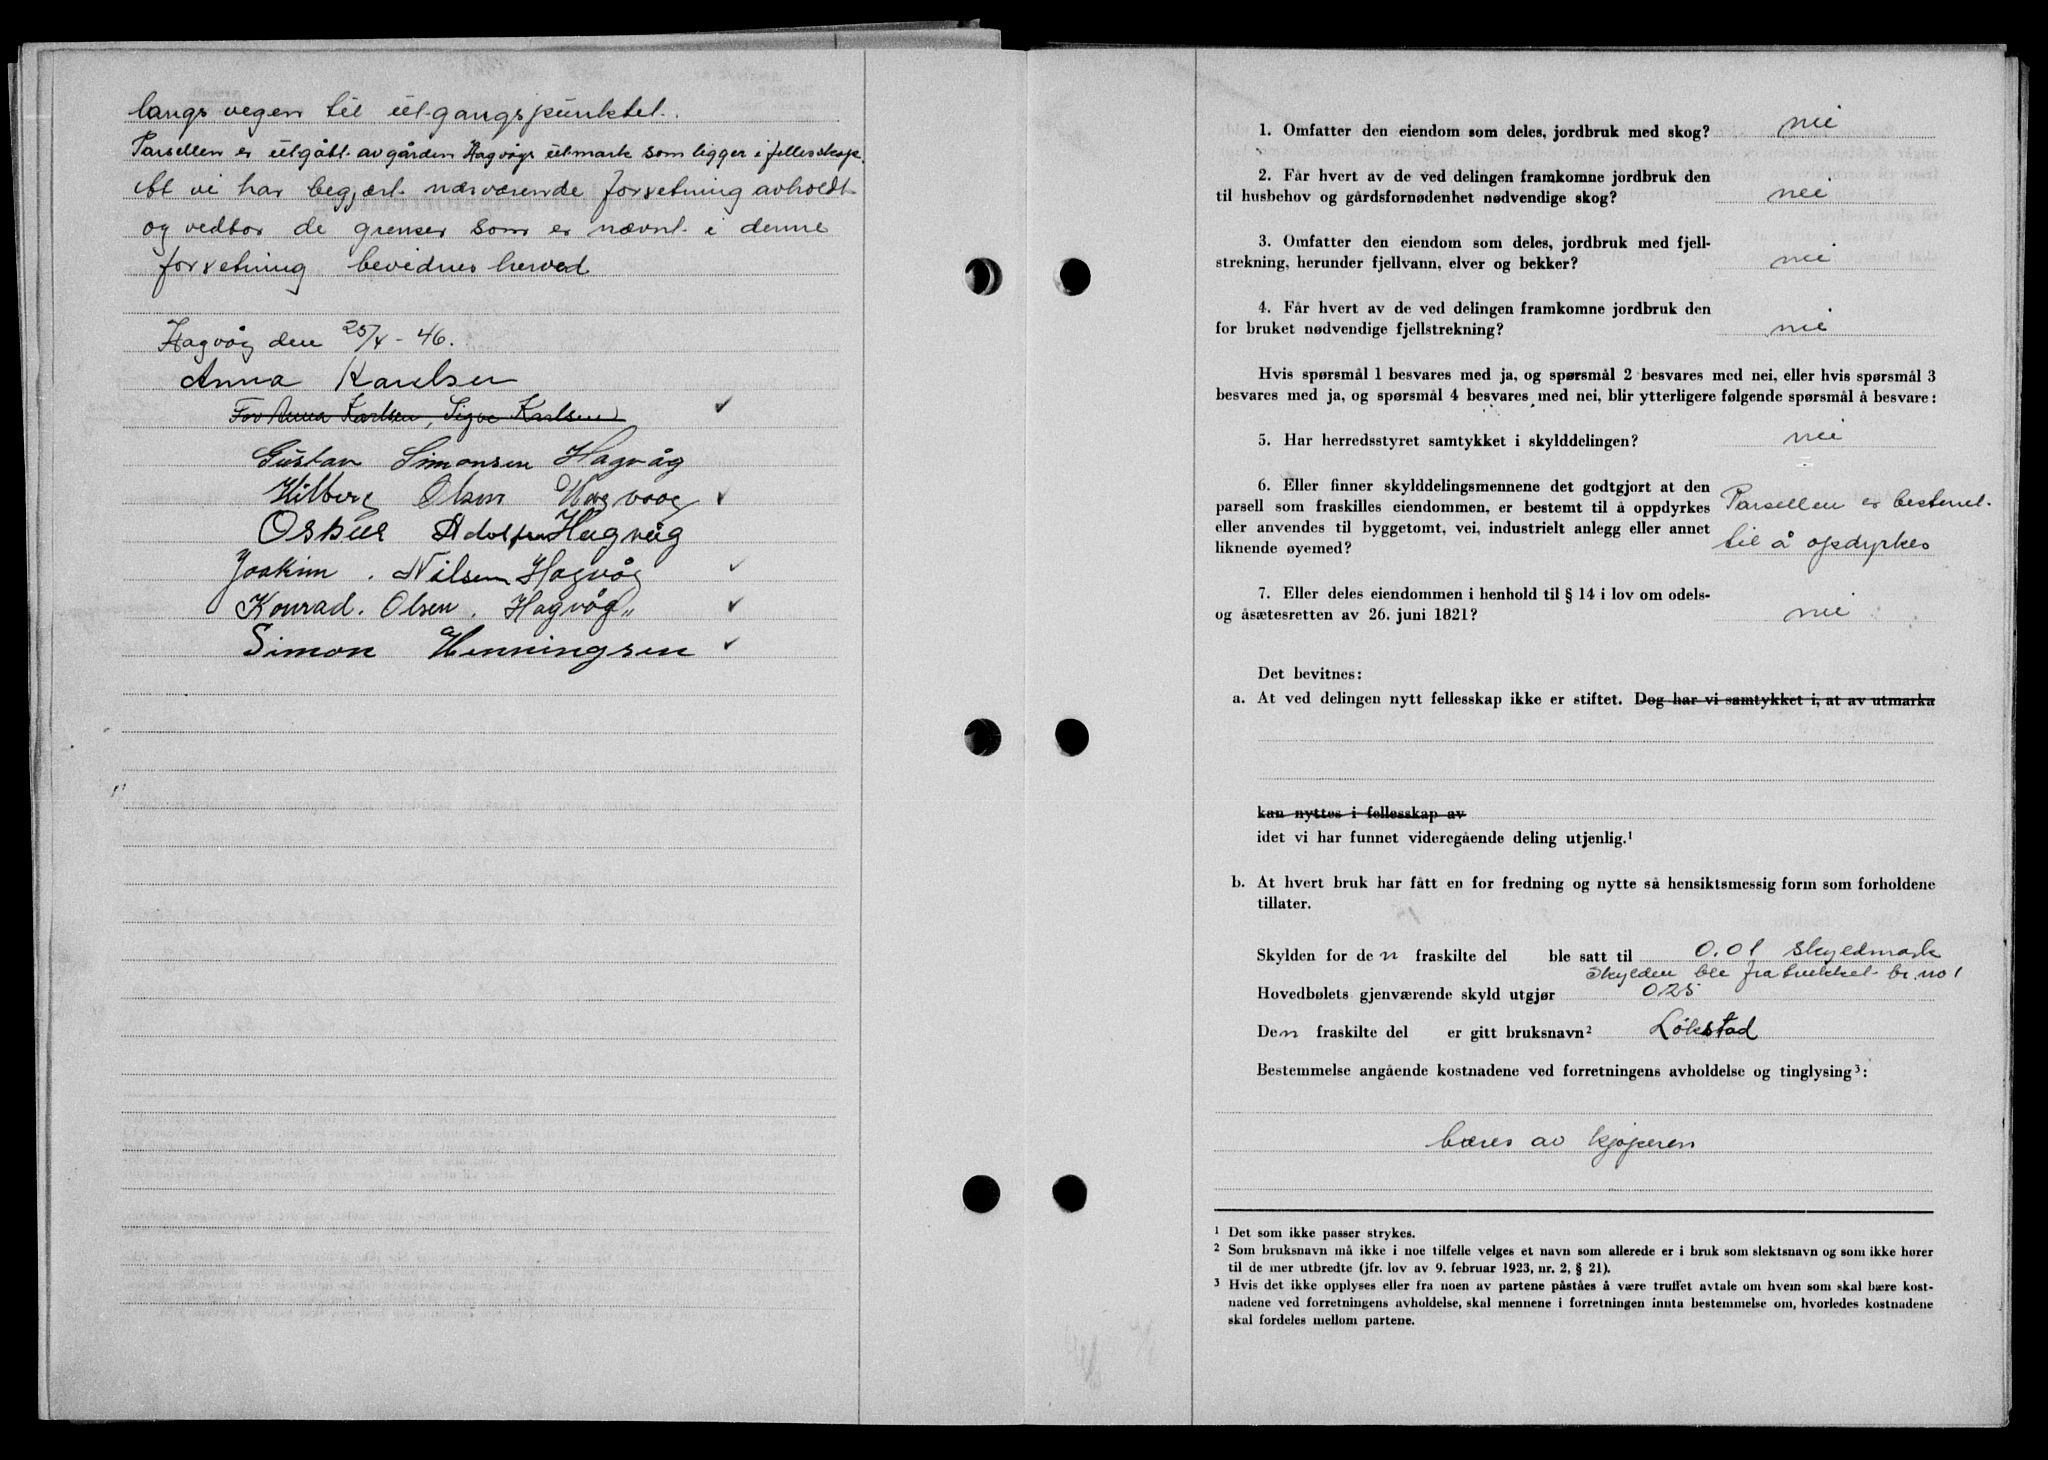 langs vegen til utgangspunktet.
Parsellen er utgått av gården Hagvågs utmark som ligger i fellesskap.
At vi har begjært nærværende forretning avholdt
og vedtar de grenser som er nævnt i denne
forretning bevidnes herved
Hagvåg den 25/x - 46.
Anna Karelsen
For Anna Karlsen, Sigve Karlsen
Gustav Simonsen Hagvåg
Hilberg Olsen Hagvaag
Oskar Adolfsen Hagvåg
Joakim Nilsen Hagvåg
Konrad Olsen, Hagvåg
Simon Henningsen
1. Omfatter den eiendom som deles, jordbruk med skog? nei
2. Får hvert av de ved delingen framkomne jordbruk den
til husbehov og gårdsfornødenhet nødvendige skog? nei
3. Omfatter den eiendom som deles, jordbruk med fjell-
strekning, herunder fjellvann, elver og bekker? nei
4. Får hvert av de ved delingen framkomne jordbruk den
for bruket nødvendige fjellstrekning? nei
Hvis spørsmål 1 besvares med ja, og spørsmål 2 besvares med nei, eller hvis spørsmål 3
besvares med ja, og spørsmål 4 besvares med nei, blir ytterligere følgende spørsmål å besvare:
5. Har herredsstyret samtykket i skylddelingen? nei
6. Eller finner skylddelingsmennene det godtgjort at den
parsell som fraskilles eiendommen, er bestemt til å oppdyrkes
eller anvendes til byggetomt, vei, industrielt anlegg eller annet
liknende øyemed?
Parsellen er bestemt
til å opdyrkes
7. Eller deles eiendommen i henhold til § 14 i lov om odels-
og åsætesretten av 26. juni 1821? nei
Det bevitnes:
a. At ved delingen nytt fellesskap ikke er stiftet. Dog har vi samtykket i, at av utmarka
kan nyttes i fellesskap av
idet vi har funnet videregående deling utjenlig.¹
b. At hvert bruk har fått en for fredning og nytte så hensiktsmessig form som forholdene
tillater.
Skylden for den fraskilte del ble satt til 0.01 skyldmark
Skylden ble fratrukket br. no 1
Hovedbølets gjenværende skyld utgjør 025
Den fraskilte del er gitt bruksnavn² Løkstad
Bestemmelse angående kostnadene ved forretningens avholdelse og tinglysing³:
bæres av kjøperen
¹ Det som ikke passer strykes.
² Som bruksnavn må ikke i noe tilfelle velges et navn som allerede er i bruk som slektsnavn og som ikke hører
til de mer utbredte (jfr. lov av 9. februar 1923, nr. 2, § 21).
³ Hvis det ikke opplyses eller fra noen av partene påståes å være truffet avtale om hvem som skal bære kost-
nadene ved forretningens avholdelse, skal mennene i forretningen innta bestemmelse om, hvorledes kostnadene
skal fordeles mellom partene.